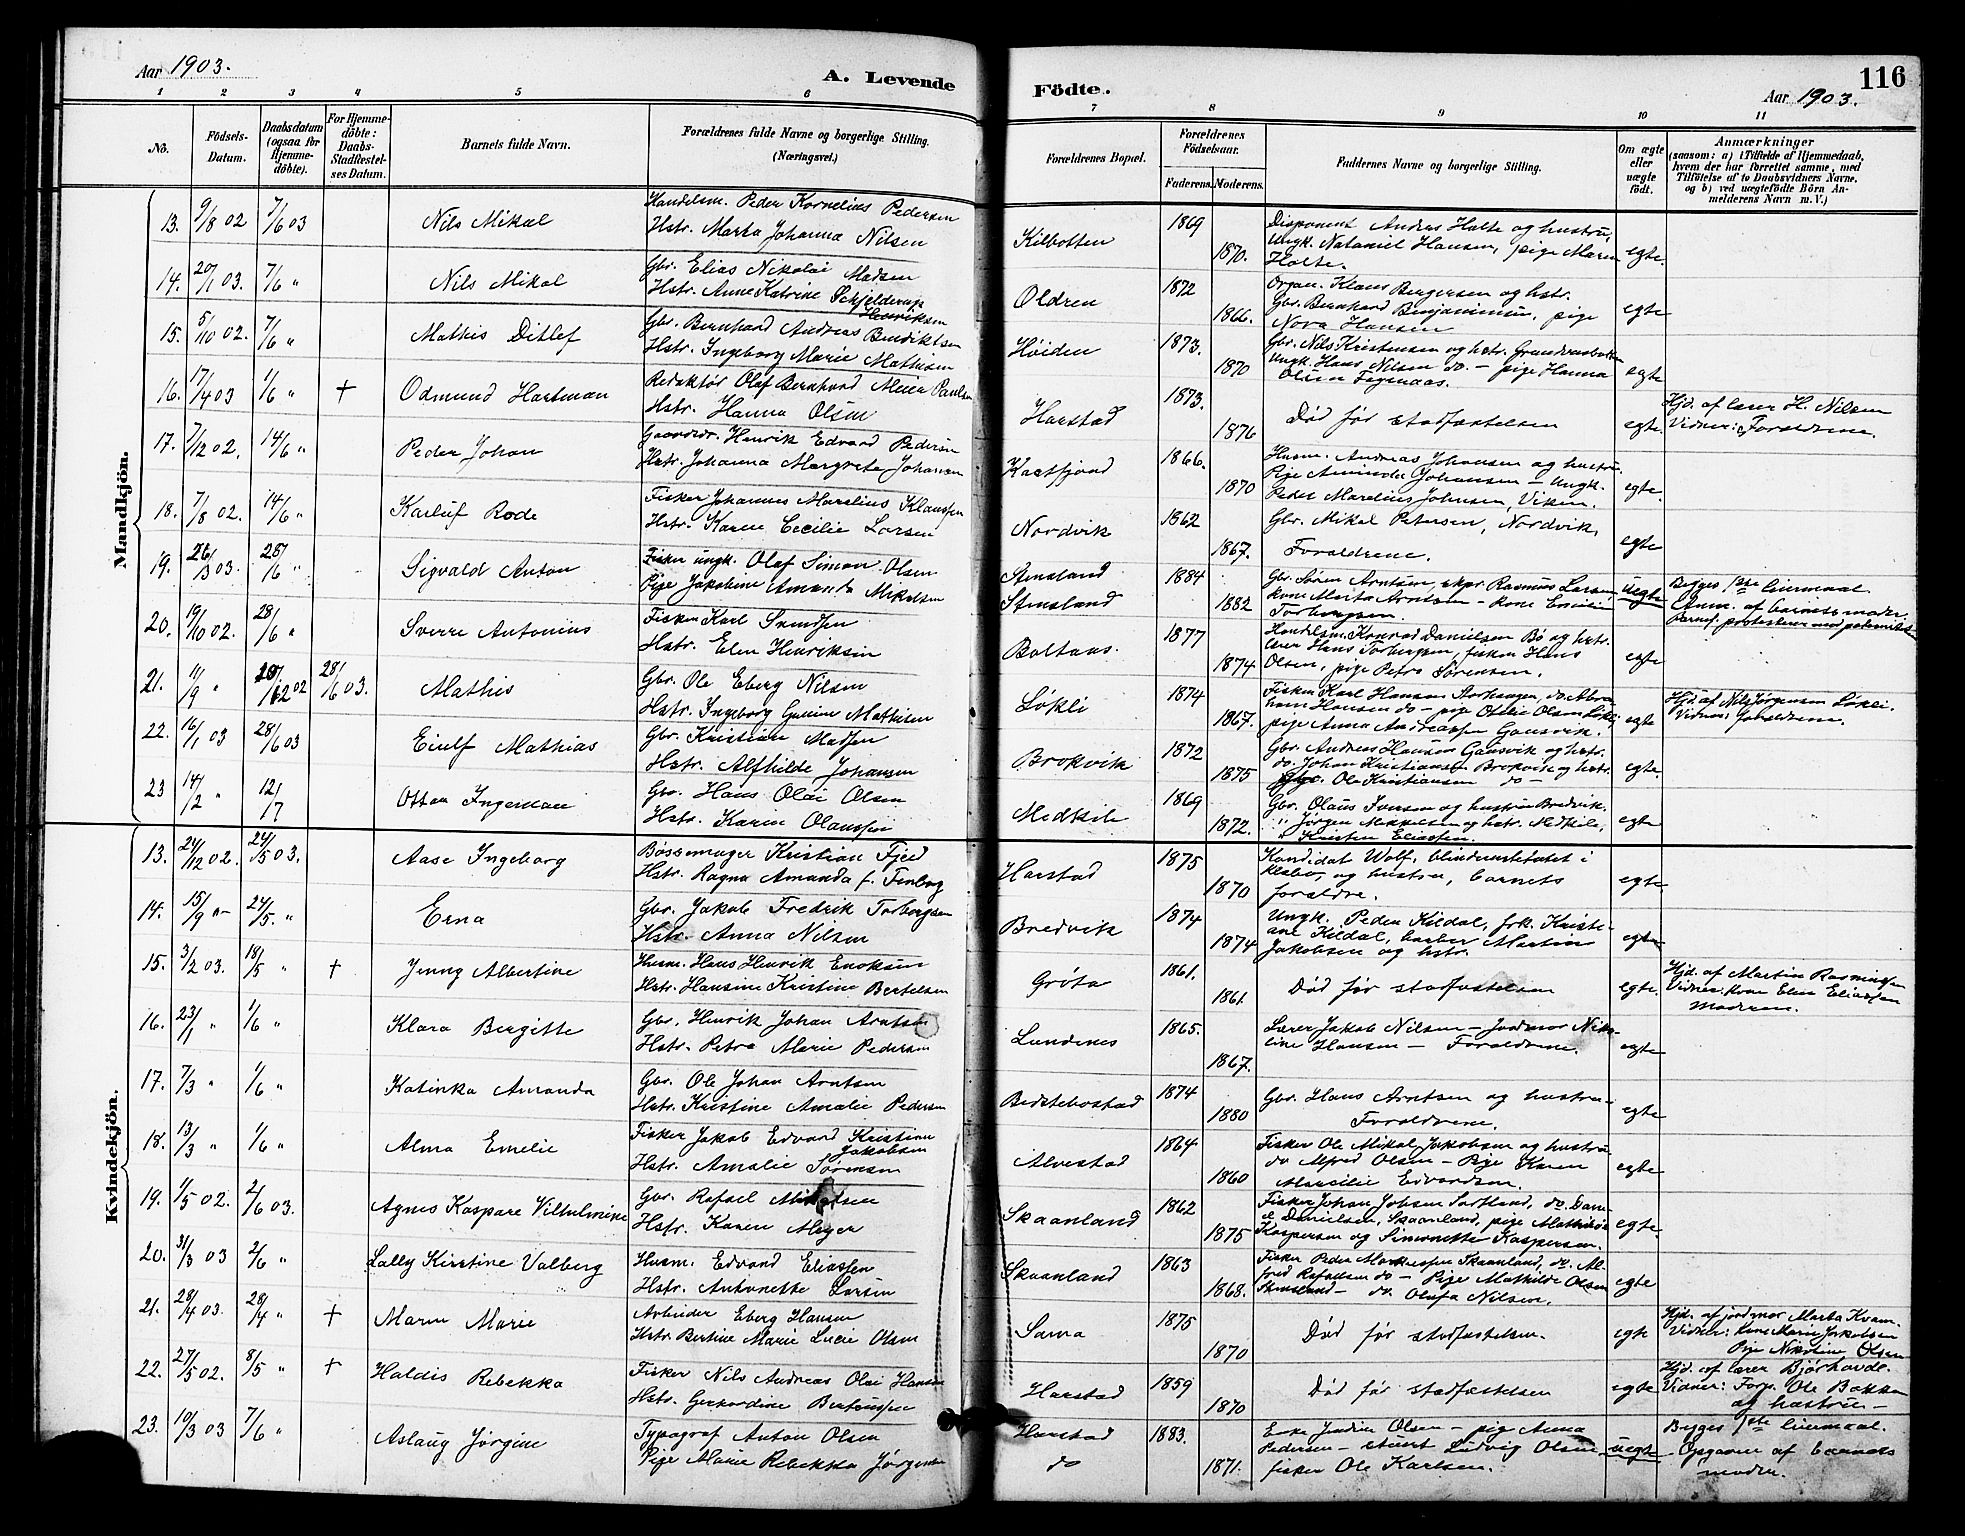 Aar 1903.
A. Levende
Födte.
Aar 1903.
116
1 2 3 4 5 6 7 8 9 10 11
No.
Födsels-Datum.
Daabsdatum (ogsaa for Hjemme-döbte).
For Hjemme-döbte: Daabs-Stadfæstel-ses Datum.
Barnets fulde Navn.
Forældrenes fulde Navne og borgerlige Stilling. (Næringsvei.)
Forældrenes Bopæl.
Forældrenes Födselsaar.
Faderens. Moderens.
Faddernes Navne og borgerlige Stilling.
Om ægte eller uægte födt.
Anmærkninger
(saasom: a) i Tilfælde af Hjemmedaab, hvem der har forrettet samme, med Tilföielse af to Daabsvidners Navne, og b) ved uægtefödte Börn An-melderens Navn m. V.)
Mandkjön.
13. 9/8 02 7/6 03 Nils Mikal
Handelsm. Peder Kornelius Pedersen
Hstr. Marta Johanna Nilsen
Kilbotten 1869 1870.
Disponent Andreas Holte og hustru,
Ungk. Nataniel Hansen, pige Maren
Holte.
egte.
14. 20/1 03. 7/6 " Nils Mikal
Gbr. Elias Nikolai Madsen
Hstr. Anne Katrine Schjelderup
Henriksen
Oldren 1872 1866.
Organ. Klaus Bergersen og hstr.
Gbr. Bernhard Benjaminsen, pige
Nora Hansen
egte
15. 5/10 02. 7/6 " Mathis Ditlef
Gbr. Bernhard Andreas Bendiktsen
Hstr. Ingeborg Marie Mathisen
Høiden 1873. 1870
Gbr. Nils Kristensen og hstr.
Ungk. Hans Nilsen do. - pige Hanna
Olsen
egte
16. 17/4 03 1/6 " † Odmund Hartman
Redaktør Olaf Bernhard Meier Paulsen
Hstr. Hanna Olsen
Harstad 1873. 1876
Død før stadfæstelsen
egte.
Hjd. af lærer H. Nilsen
Vidner: Forældrene.
17. 7/12 02. 14/6 " Peder Johan
Gaardbr. Henrik Edvard Pedersen
Hstr. Johanna Margrete Johansen
Kastfjord 1866. 1870
Husm. Andreas Johansen og hustru.
Pige Aminda Johansen - Ungk.
Peder Marelius Johnsen, Viken.
egte.
18. 7/8 02. 14/6 " Karluf Rode
Fisker Johannes Marelius Klaussen
Hstr. Karen Cecilie Larsen
Nordvik 1862 1867.
Gbr. Mikal Petersen, Nordvik,
Forældrene.
egte
19. 26/3 03. 28/6 " Sigvald Anton
Fisker ungk. Olaf Simon Olsen
Pige Jakobine Amanda Mikalsen
Stensland
Stensland 1884 1882
Gbr. Søren Arntsen, skpr. Rasmus Larsen,
kone Marta Arntsen - kone Emilie
Torbergsen.
uegte
Begges 1ste leiermaal.
Anm. af barnets moder.
20. 19/10 02. 28/6 " Sverre Antonius
Fisker Karl Svendsen
Hstr. Elen Henriksen
Baltaas. 1877 1874.
Handelsm. Konrad Danielsen Bø og hstr.
lærer Hans Torbergsen, fisker Hans
Olsen, pige Petra Sørensen.
egte
21. 11/9 " 28/12 02 28/6 03. Mathis
Gbr. Ole Eberg Nilsen
Hstr. Ingeborg Gurine Mathisen
Løkli 1874 1867.
Fisker Karl Hansen Storhaugen, do. Abra-
ham Hansen do - pige Otelie Olsen Løkli,
pige Anna Andreassen Gausvik.
egte
Hjd. af Nils Jørgensen Løkli.
Vidner: forældrene.
22. 16/1 03 28/6 03 Eiulf Mathias
Gbr. Kristian Madsen
Hstr. Alfhilde Johansen
Brokvik 1872 1875
Gbr. Andreas Hansen Gausvik og hstr.
do. Johan Kristiansen Brokvik og hstr.
Ole Kristiansen do -
egte.
23 14/2 " 12/7 Ottar Ingeman
Gbr. Hans Olai Olsen
Hstr. Karen Olaussen
Medkile 1869 1872.
Gbr. Olaus Iversen og hustru Bredvik.
" Jørgen Mikkelsen og hstr. Medkile,
" Kristen Eliassen.
egte
Kvindekjön.
13. 24/12 02. 24/5 03. Aase Ingeborg
Bøssemager Kristian Fjeld
Hstr. Ragna Amanda f. Finbog
Harstad 1875 1870
Kandidat Wolf, blindeinstitutet i
Klæbo, og hustru, barnets
forældre.
egte
14. 15/9 " 24/5. " Erna
Gbr. Jakob Fredrik Torbergsen
Hstr. Anna Nilsen
Bredvik 1874 1874
Ungk. Peder Kildal, frk. Kristi-
ane Kildal, barber Morten
Jakobsen og hstr.
egte
15. 3/2 03. 18/5 " † Jenny Albertine
Husm. Hans Henrik Enoksen
Hstr. Hansine Kristine Bertelsen
Grøta 1861. 1861.
Død før stadfæstelsen
egte.
Hjd. af Martin Rasmussen
Vidner: kone Elen Eliassen
Moderen.
16. 23/1 " 1/6 " Klara Bergitte
Gbr. Henrik Johan Arntsen
Hstr. Petra Marie Pedersen
Lundenes 1865. 1867.
Lærer Jakob Nilsen - Jordmor Niko-
line Hansen - Forældrene.
egte
17. 7/3 " 1/6 " Katinka Amanda
Gbr. Ole Johan Arntsen
Hstr. Kristine Amalie Pedersen
Berstebostad 1874 1880
Gbr. Hans Arntsen og hustru -
Forældrene.
egte
18. 13/3 " 1/6 " Alma Emelie
Fisker Jakob Edvard Kristian
Jakobsen
Hstr. Amalie Sørensen
Alvestad 1864 1860
Fisker Ole Mikal Jakobsen og hustru
do Alfred Olsen - Pige Karen
Marcilie Edvardsen.
egte
19. 1/5 02. 2/6 03. Agnes Kaspare Vilhelmine
Gbr. Rafael Mikalsen
Hstr. Karen Meyer
Skaanland 1862 1875
Fisker Johan Johsen Sortland, do. Dani-
el Danielsen, Skaanland, pige Mathilde
Kaspersen og Simonette Kaspersen.
egte
20. 31/3 03 2/6 " Lally Kirstine Valberg
Husm. Edvard Eliassen
Hstr. Antonette Larsen
Skaanland 1863 1868.
Fisker Peder Markussen Skaanland, do. Al-
fred Rafaelsen do - Pige Mathilde Olsen
Stensland - do. Olufa Nilsen.
egte
21. 28/4 03. 28/4 " † Maren Marie
Arbeider Eberg Hansen
Hstr. Bertine Marie Lucie Olsen
Sama 1875 1870
Død før stadfæstelsen.
egte
Hjd. af jordmor Marta Kvam.
Vidner: kone Marie Jakobsen
Pige Nikoline Olsen
22. 27/5 02. 8/5 " † Haldis Rebekka
Fisker Nils Andreas Olai Hansen
Hstr. Gerhardine Berntsen
Harstad 1859 1870
Død før stadfæstelsen
egte
Hjd. af lærer Bjørhovde.
Vidner: Forp. Ole Bakken
og hustru -
23. 10/3 03 7/6 " Aslaug Jørgine
Typograf Anton Olsen
Pige Marie Rebekka Jørgensen
Harstad
do 1883. 1871.
Enke Jendine Olsen - pige Anna
Pedersen - stuert Ludvig Olsen -
fisker Ole Karlsen.
uegte
Begges 1ste leiermaal.
Opgaven af barnets
moder.